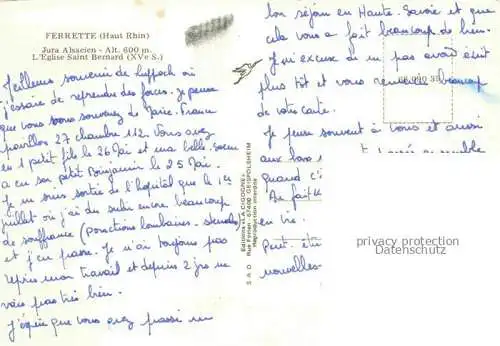 FERRETTE (Haut Rhin)
Jura Alsacien - Alt. 600 m.
L'Eglise Saint Bernard (XVe S.)
Meilleurs souvenir de
j'essaie de reprendre des forces. Je pense
que vous vous souvenez de Marie-France
pavillon 27 chambre 112. Vous avez
eu 1 petit fils le 26 Mai et ma belle-soeur
a eu son petit Benjamin le 25 Mai.
Je ne suis sortie de l'hôpital que le 1er
juillet où j'ai du subir encore beaucoup
de souffrance (ponctions lombaires -
et j'en passe. Je n'ai toujours pas
repris mon travail et depuis 2 jrs ne
vais pas très bien.
J'espère que vous avez passé un
bon séjour en Haute-Savoie et que
cela vous a fait beaucoup de bien.
J'ai excuse de ne pas avoir écrit
plus tôt et vous remercie beaucoup
de votre carte.
Je pense souvent à vous et aussi
aux bons
quand
en vie.
Peut-être
nouvelles-
Editions «LA CIGOGNE»
S A D Rue Forrer - 67400 GEISPOLSHEIM
Reproduction interdite
privacy protection
Datenschutz